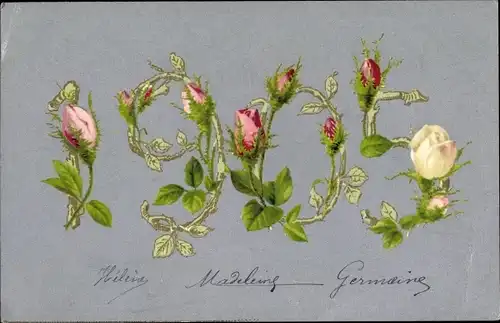 1905
Hélène Madeleine Germaine